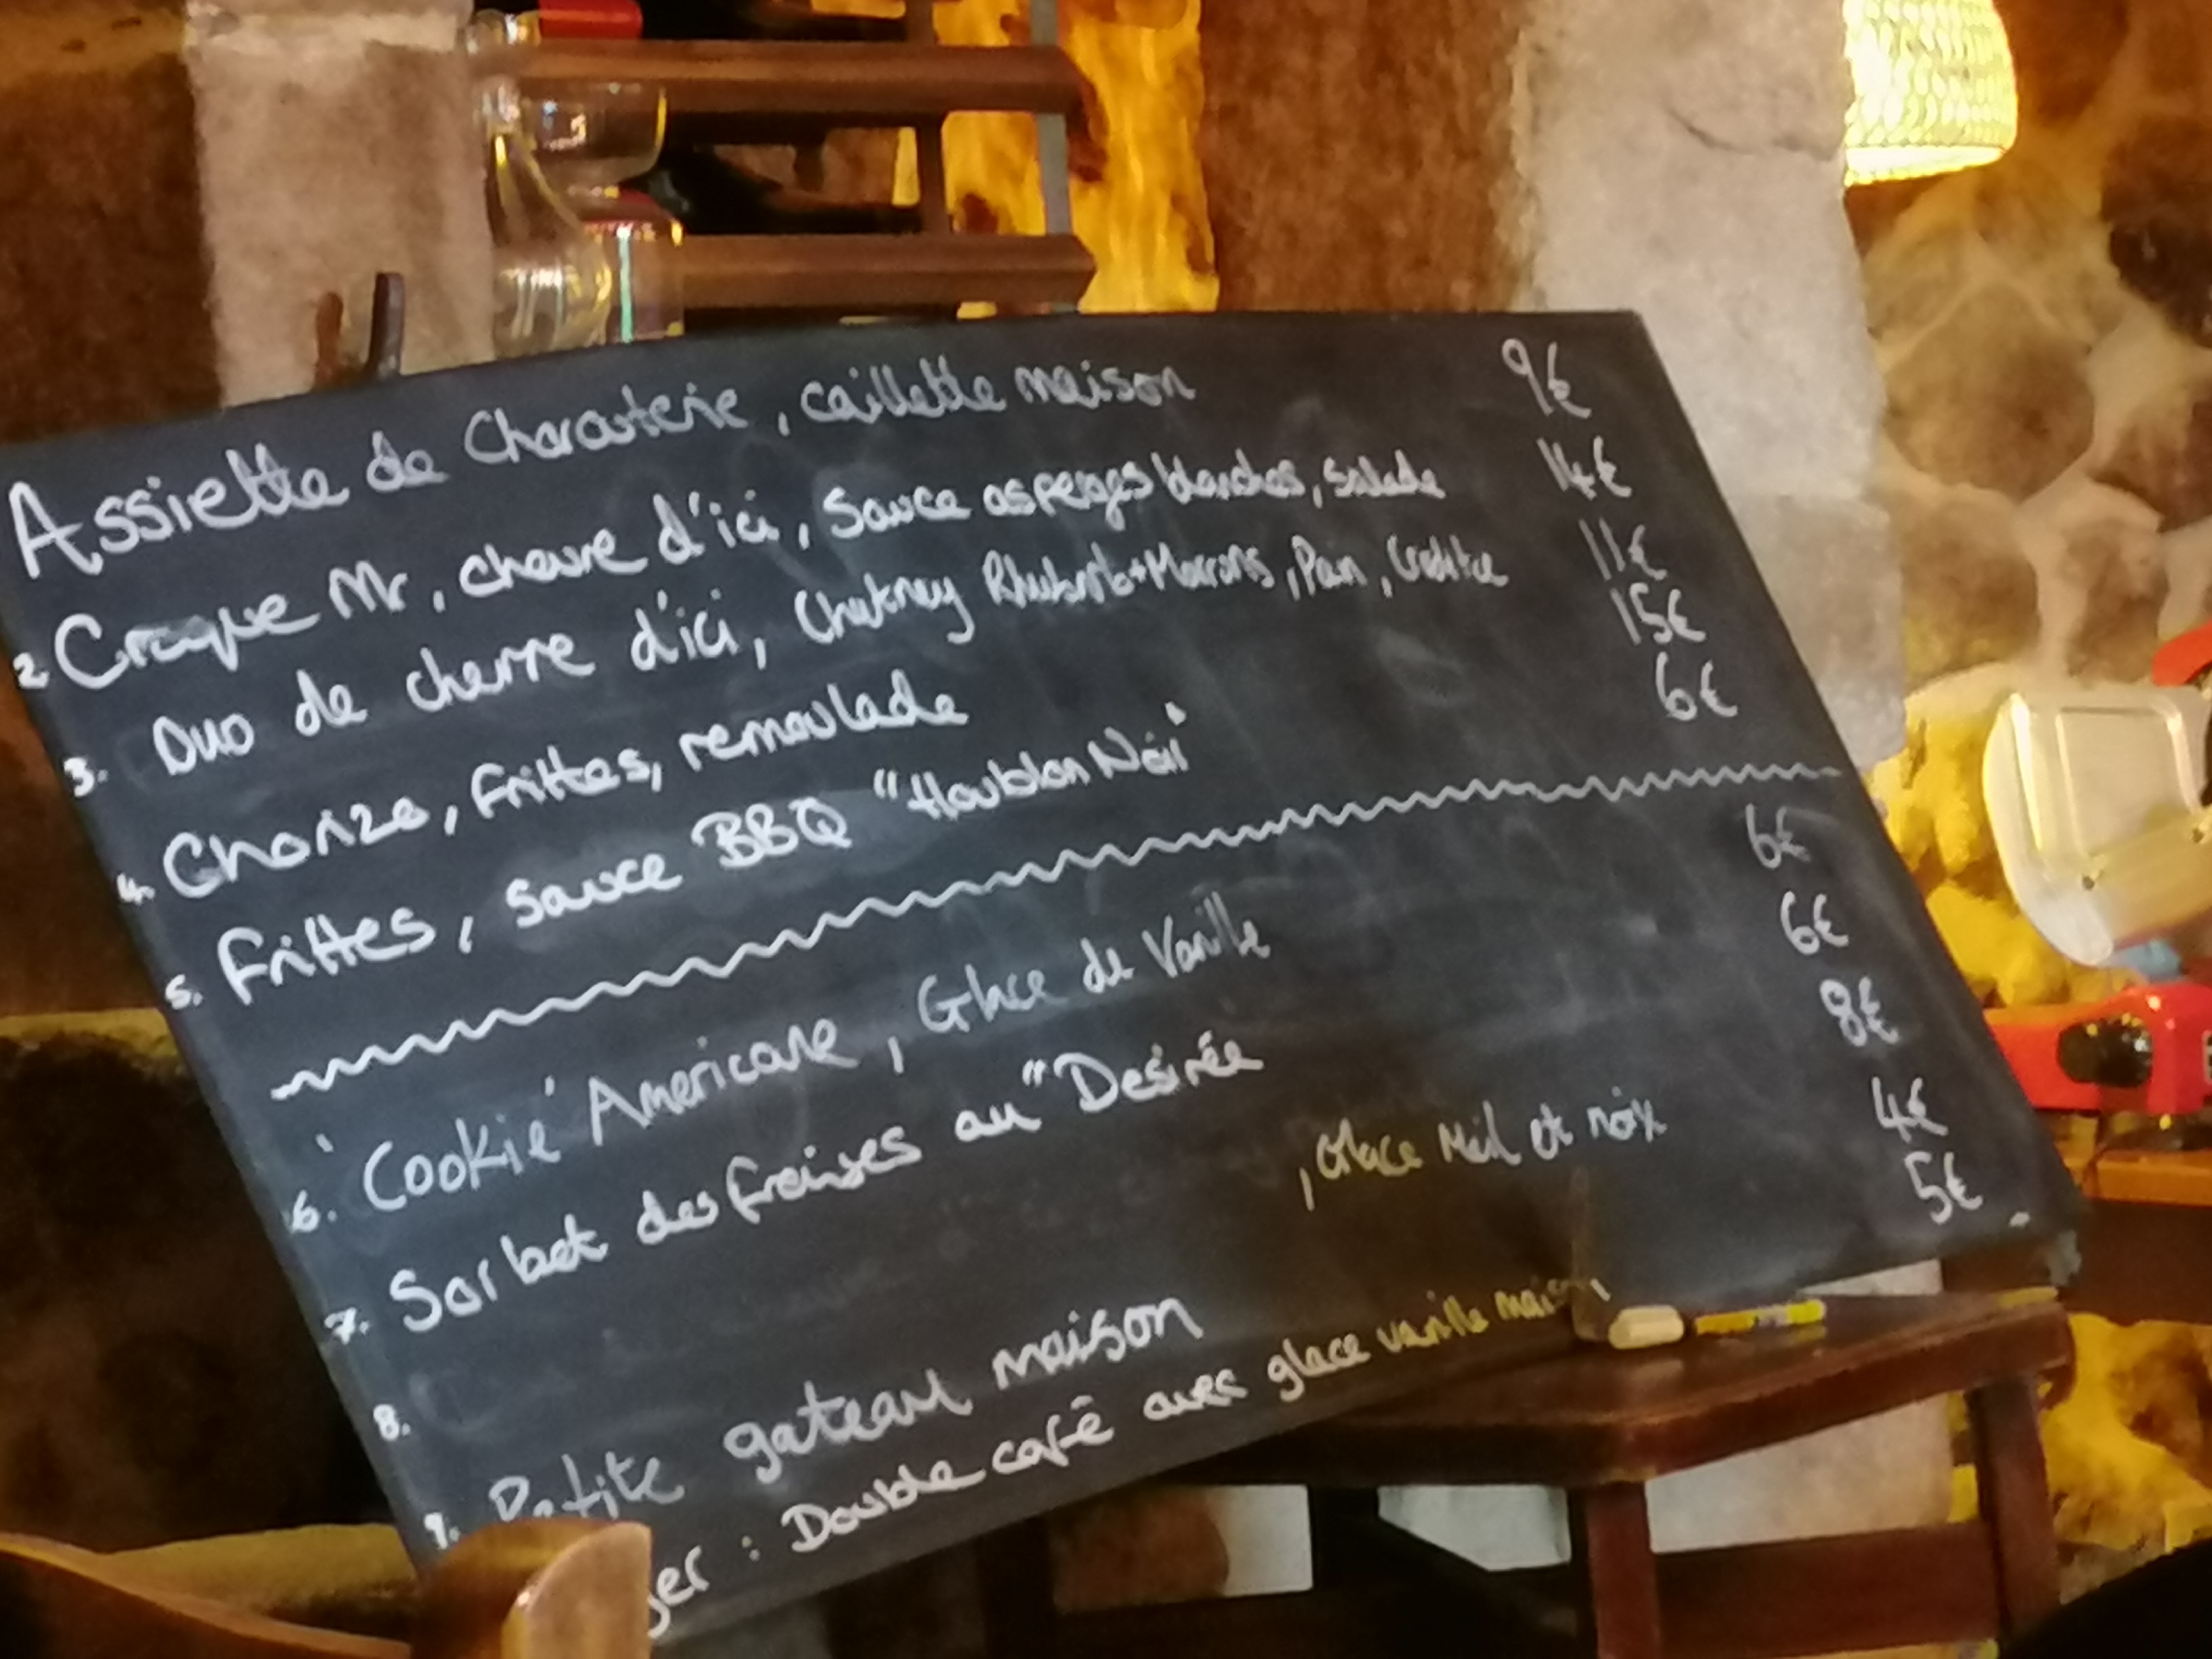 Assiette de Charcuterie, caillette maison 9€
2 Croque Mr, chevre d'ici, Sauce asperges blanches, salade 14€
3. Duo de chevre d'ici, Chutney Rhubarb+Marrons, Pain, 11€
4. Chorizo, frittes, remoulade 15€
5. Frittes, sauce BBQ "Houblon Noir" 6€
6. 'Cookie' Americane, Glace de Vanille 6€
7. Sorbet des fraises au "Desirée 6€
8. , Glace Miel et noix 8€
9. Petite gateau maison 4€
ger : Double café avec glace vanille maison 5€